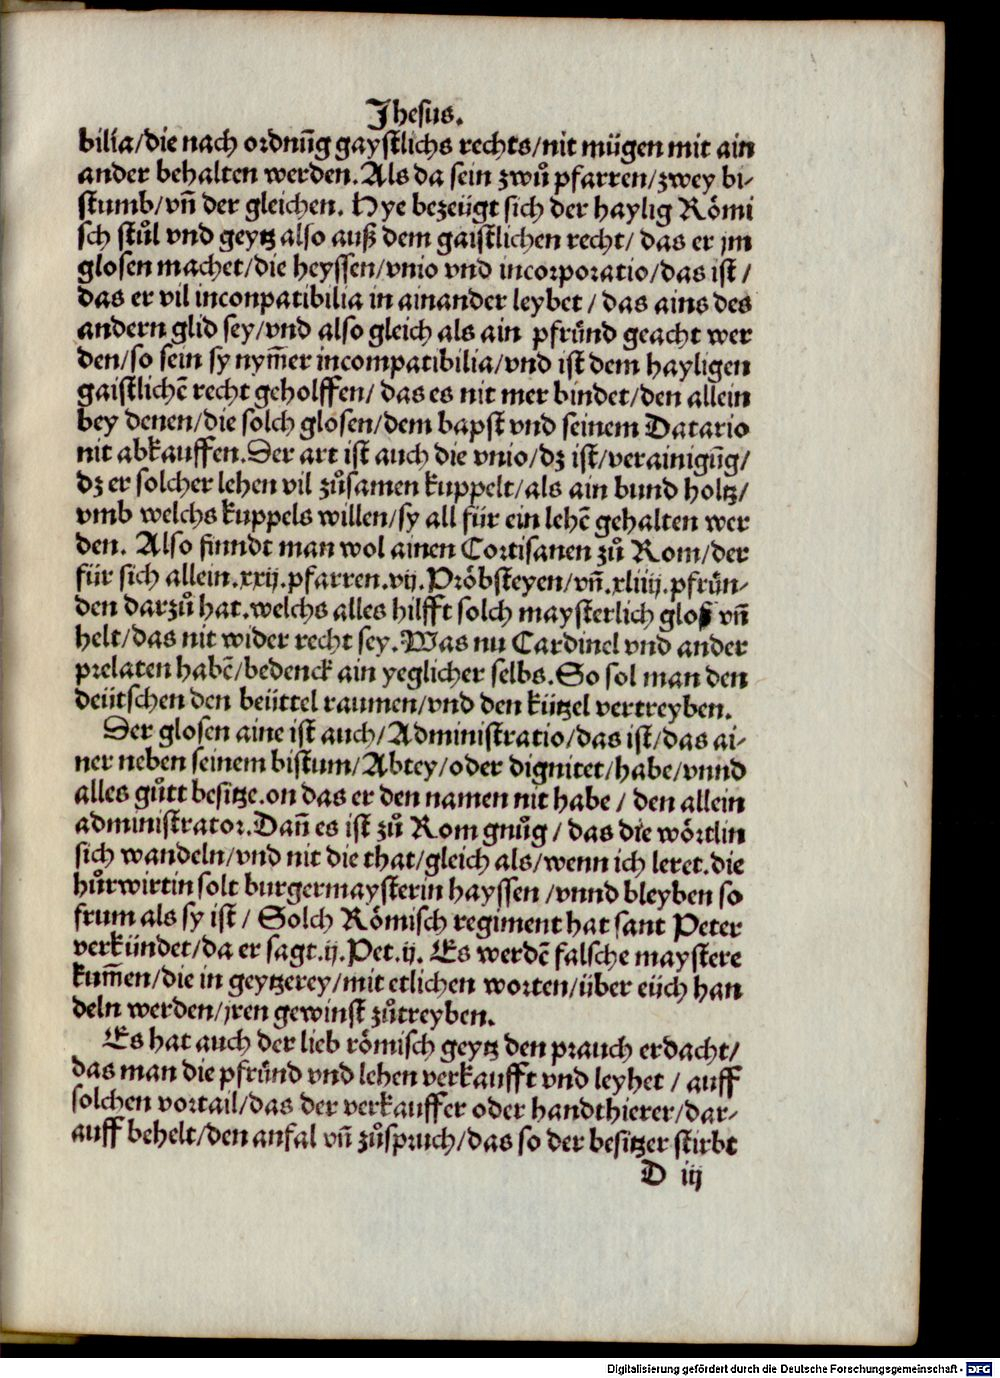 Jhesus.
bilia/die nach ordnūg gaystlichs rechts/nit mügen mit ain
ander behalten werden. Als da sein zwů pfarren/zwey bi-
stumb/vn̄ der gleichen. Hye bezeügt sich der haylig Römi
sch stůl vnd geytz also auß dem gaistlichen recht/ das er jm
glosen machet/die heyssen/vnio vnd incorporatio/das ist/
das er vil inconpatibilia in ainander leybet/ das ains des
andern glid sey/vnd also gleich als ain pfründ geacht wer
den/so sein sy nym̄er incompatibilia/vnd ist dem hayligen
gaistlichē recht geholffen/ das es nit mer bindet/den allein
bey denen/die solch glosen/dem bapst vnd seinem Datario
nit abkauffen. Der art ist auch die vnio/dz ist/verainigūg/
dz er solcher lehen vil zůsamen kuppelt/als ain bund holtz/
vmb welchs kuppels willen/sy all für ein lehē gehalten wer
den. Also finndt man wol ainen Cortisanen zů Rom/der
für sich allein.xxij.pfarren.vij.Pröbsteyen/vn̄.xliiij.pfrün-
den darzů hat.welchs alles hilfft solch maysterlich glos vn̄
helt/das nit wider recht sey. Was nu Cardinel vnd ander
prelaten habē/bedenck ain yeglicher selbs. So sol man den
deütschen den beüttel raumen/vnd den kützel vertreyben.
Der glosen aine ist auch/Administratio/das ist/das ai-
ner neben seinem bistum/Abtey/oder dignitet/habe/vnnd
alles gůtt besitze.on das er den namen nit habe/ den allein
administrator. Dan̄ es ist zů Rom gnůg/ das die wörtlin
sich wandeln/vnd nit die that/gleich als/wenn ich leret.die
hůrwirtin solt burgermaysterin hayssen/vnnd bleyben so
frum als sy ist/ Solch Römisch regiment hat sant Peter
verkündet/da er sagt.ij.Pet.ij. Es werdē falsche maystere
kum̄en/die in geytzerey/mit etlichen worten/über eüch han
deln werden/jren gewinst zůtreyben.
Es hat auch der lieb römisch geytz den prauch erdacht/
das man die pfründ vnd lehen verkaufft vnd leyhet/ auff
solchen vortail/das der verkauffer oder handthierer/dar-
auff behelt/den anfal vn̄ zůspruch/das so der besitzer stirbt
D iij
Digitalisierung gefördert durch die Deutsche Forschungsgemeinschaft - DFG